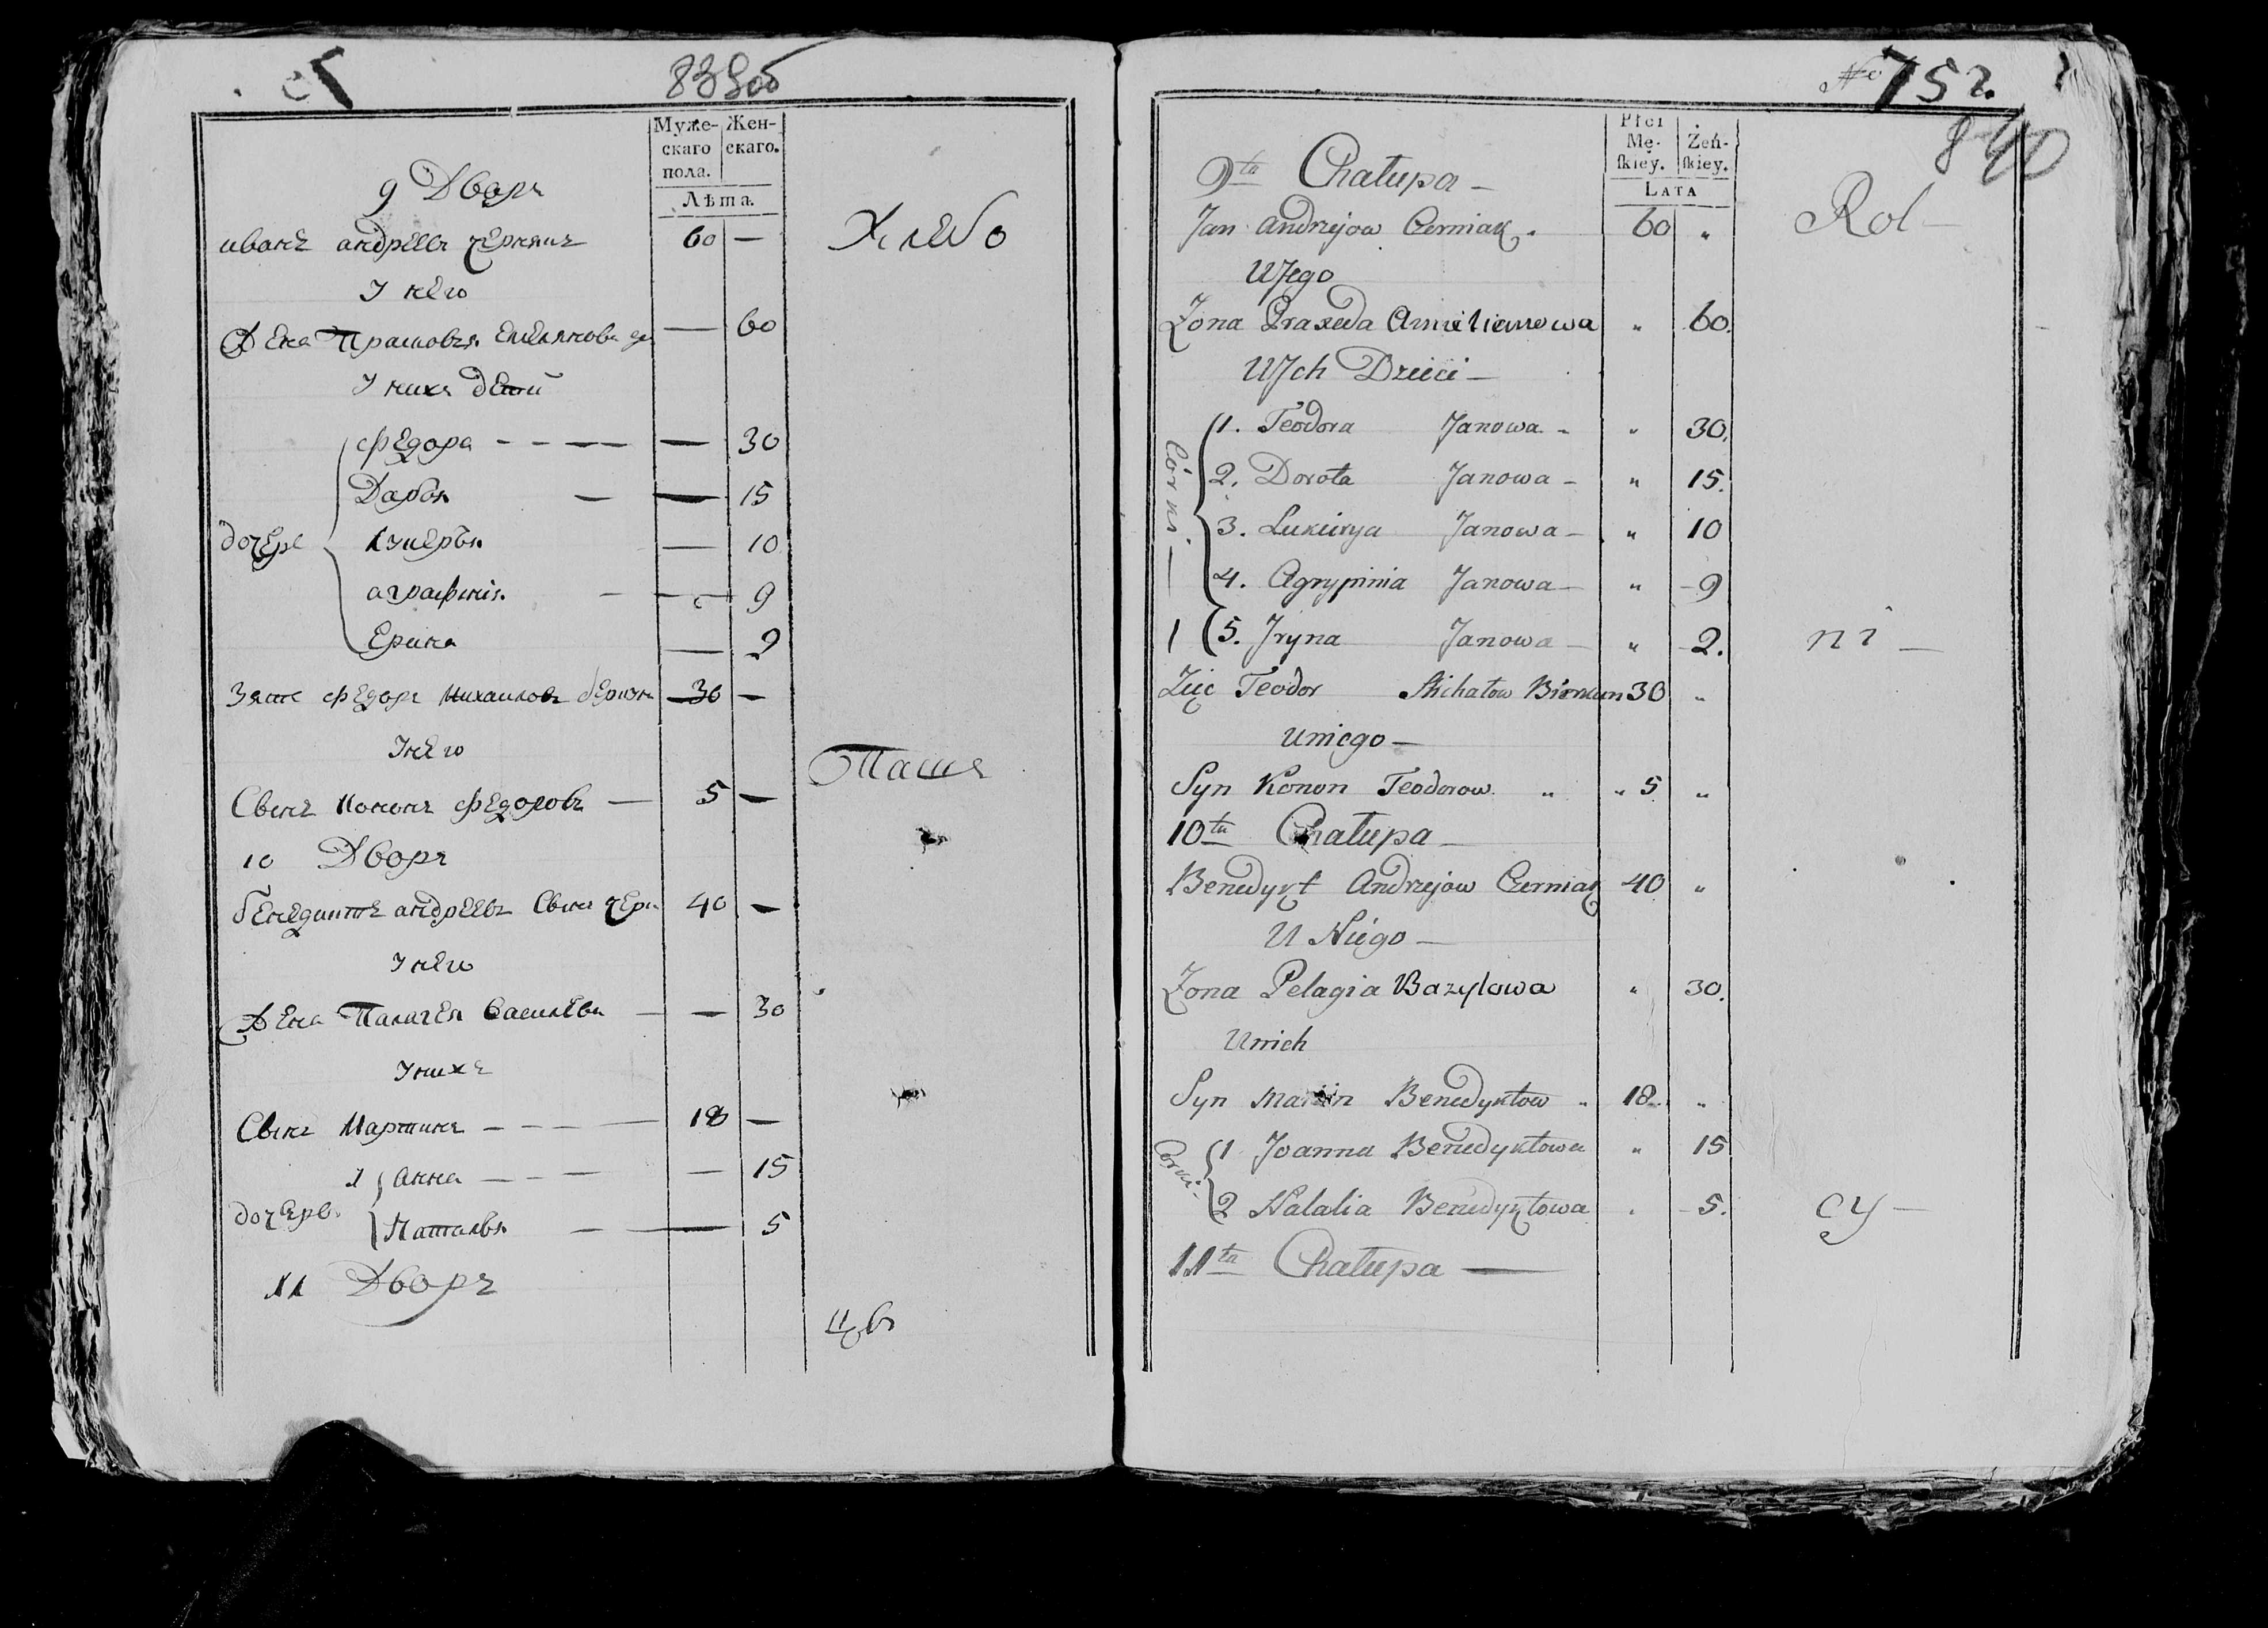 839об
Муже- Жен-
скаго скаго.
пола.
Лѣта.
9 Дворъ
иванъ андреевъ чернякъ 60 —
У него Хлебо
Жена Прасковъя Емельянова — 60
У нихъ детей
федора — 30
Даръя — 15
дочери Лукеръя — 10
аграфиня — 9
Ерина — 2
Зять федоръ михаиловъ 30 —
У него Паше
Сынъ Кононъ федоровъ — 5 —
10 Дворъ
бенедиктъ андреевъ Сынъ черн 40 —
У него
Жена Палагея Василева — 30
У нихъ
Сынъ Мартинъ 18 —
1 Анна — 15
дочери
Наталья — 5
11 Дворъ
цы
No 752.
840
Płci
Mę- Żeń-
ſkiey. ſkiey.
Lata
9ta Chałupa —
Jan Andrzejow Czerniak. 60 „ Rol —
U Jego
Żona Praxeda Amelianowa „ 60.
U Jch Dzieci —
Córki —
1. Teodora Janowa — „ 30.
2. Dorota Janowa — „ 15.
3. Lukirya Janowa — „ 10
4. Agrypinia Janowa — „ 9
1 5. Jryna Janowa — „ 2. ni —
Zięć Teodor Michałow 30 „
U niego —
Syn Konon Teodorow „ „ 5 „
10ta Chałupa —
Benedykt Andrzejow Czerniak 40 „
U Niego —
Żona Pelagia Bazylowa „ 30.
U nich
Syn Marcin Benedyktow „ 18. „
Corki —
1 Joanna Benedyktowa „ 15
2 Natalia Benedyktowa . 5. cy —
11ta Chałupa —